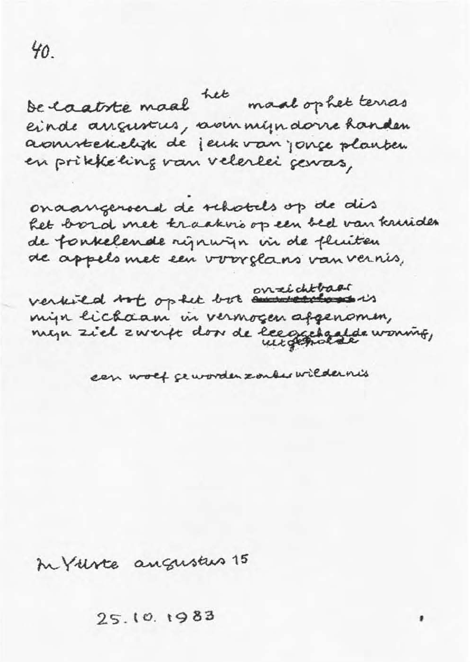 40.
De laatste maal het maal op het terras
einde augustus, aan mijn dorre handen
aanstekelijk de jeuk van jonge planten
en prikkeling van velerlei gewas,
onaangeroerd de schotels op de dis
het bord met kraakvis op een bed van kruiden
de fonkelende rijnwijn in de fluiten
de appels met een voorglans van vernis,
onzichtbaar
verkild tot op het bot is
mijn lichaam in vermogen afgenomen,
mijn ziel zwerft door de leeggehaalde woning,
uitgeholde
een wolf geworden zonder wildernis
augustus 15
25.10.1983